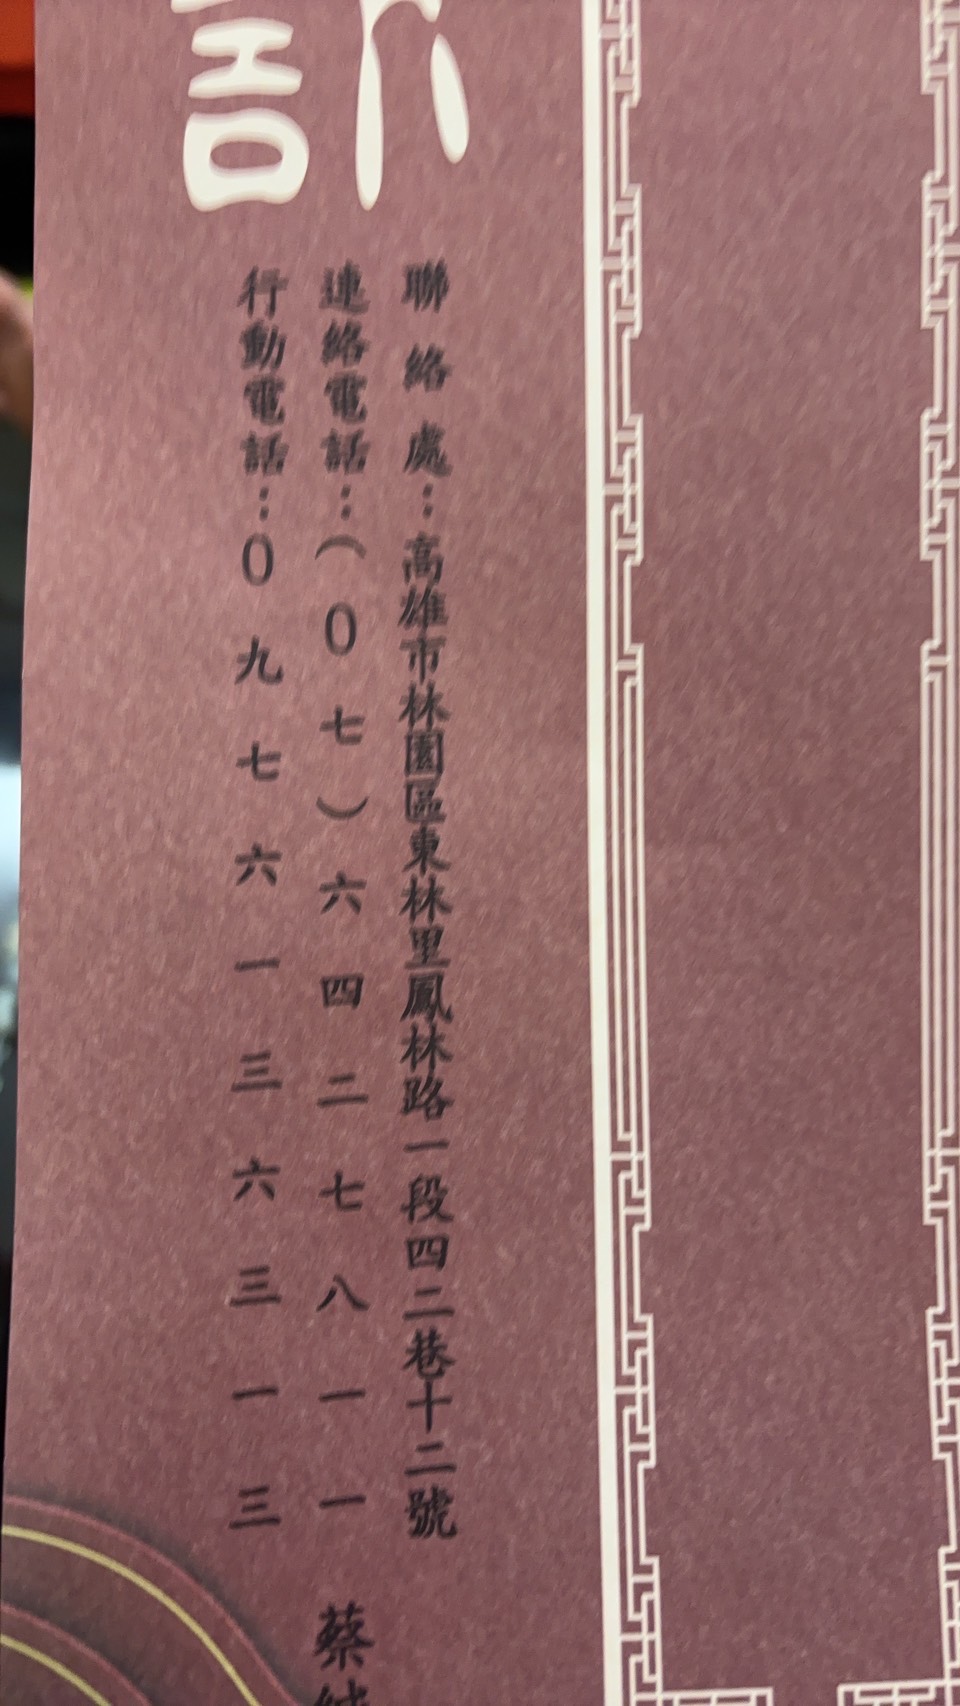 訃
聯絡處：高雄市林園區東林里鳳林路一段四二巷十二號
連絡電話：（０七）六四二七八一一 蔡
行動電話：０九七六一三六三一三